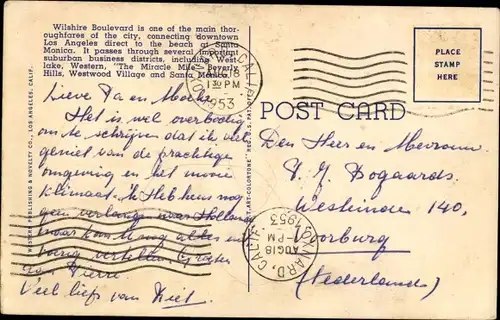 Wilshire Boulevard is one of the main thor-
oughfares of the city, connecting downtown
Los Angeles direct to the beach at Santa
Monica. It passes through several important
suburban business districts, including West-
lake, Western, "The Miracle Mile," Beverly
Hills, Westwood Village and Santa Monica.
Lieve Pa en Moeke
Het is wel overbodig
om te schrijven dat ik veel
geniet van de prachtige
omgeving en het mooie
klimaat. Ik heb heus nog
geen verlangen naar Holland
maar kom U nog alles en
vertellen. Groeten
van Pierre.
Veel liefs van Diet.
WESTERN PUBLISHING & NOVELTY CO., LOS ANGELES, CALIF.
CALIF.
18
1 30 PM
1953
POST CARD
PLACE
STAMP
HERE
Den Heer en Mevrouw
Bogaards.
Westeinde 140,
Voorburg
(Nederland)
OXNARD, CALIF.
AUG 18
-PM
1953